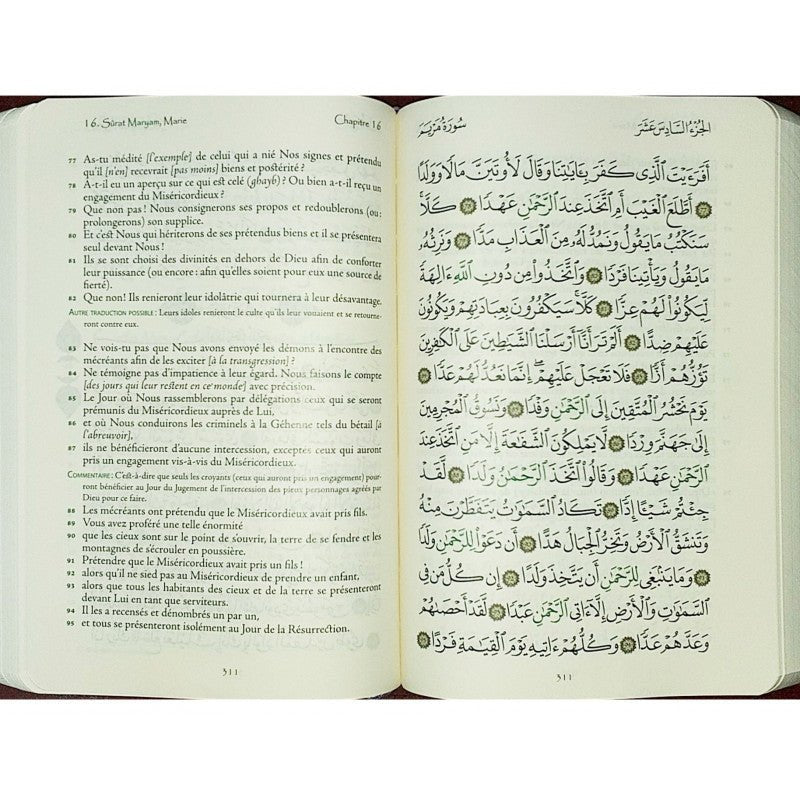 16. Sûrat Maryam, Marie
Chapitre 16
77 As-tu médité [l'exemple] de celui qui a nié Nos signes et prétendu
qu'il [n'en] recevrait [pas moins] biens et postérité ?
78 A-t-il eu un aperçu sur ce qui est celé (ghayb) ? Ou bien a-t-il reçu un
engagement du Miséricordieux ?
79 Que non pas ! Nous consignerons ses propos et redoublerons (ou :
prolongerons) son supplice.
80 Et c'est Nous qui hériterons de ses prétendus biens et il se présentera
seul devant Nous !
81 Ils se sont choisi des divinités en dehors de Dieu afin de conforter
leur puissance (ou encore : afin qu'elles soient pour eux une source de
fierté).
82 Que non! Ils renieront leur idolâtrie qui tournera à leur désavantage.
Autre traduction possible : Leurs idoles renieront le culte qu'ils leur vouaient et se retourne-
ront contre eux.
83 Ne vois-tu pas que Nous avons envoyé les démons à l'encontre des
mécréants afin de les exciter [à la transgression] ?
84 Ne témoigne pas d'impatience à leur égard. Nous faisons le compte
[des jours qui leur restent en ce monde] avec précision.
85 Le Jour où Nous rassemblerons par délégations ceux qui se seront
prémunis du Miséricordieux auprès de Lui,
86 et où Nous conduirons les criminels à la Géhenne tels du bétail [à
l'abreuvoir],
87 ils ne bénéficieront d'aucune intercession, exceptés ceux qui auront
pris un engagement vis-à-vis du Miséricordieux.
Commentaire : C'est-à-dire que seuls les croyants (ceux qui auront pris un engagement) pour-
ront bénéficier au Jour du Jugement de l'intercession des pieux personnages agréés par
Dieu pour ce faire.
88 Les mécréants ont prétendu que le Miséricordieux avait pris fils.
89 Vous avez proféré une telle énormité
90 que les cieux sont sur le point de s'ouvrir, la terre de se fendre et les
montagnes de s'écrouler en poussière.
91 Prétendre que le Miséricordieux avait pris un fils !
92 alors qu'il ne sied pas au Miséricordieux de prendre un enfant,
93 alors que tous les habitants des cieux et de la terre se présenteront
devant Lui en tant que serviteurs.
94 Il les a recensés et dénombrés un par un,
95 et tous se présenteront isolément au Jour de la Résurrection.
311
الجُزْءُ السَّادِسَ عَشَرَ
سُورَةُ مَرْيَمَ
أَفَرَءَيْتَ ٱلَّذِى كَفَرَ بِـَٔايَـٰتِنَا وَقَالَ لَأُوتَيَنَّ مَالًا وَوَلَدًا
٧٧ أَطَّلَعَ ٱلْغَيْبَ أَمِ ٱتَّخَذَ عِندَ ٱلرَّحْمَـٰنِ عَهْدًا ٧٨ كَلَّا
سَنَكْتُبُ مَا يَقُولُ وَنَمُدُّ لَهُۥ مِنَ ٱلْعَذَابِ مَدًّا ٧٩ وَنَرِثُهُۥ
مَا يَقُولُ وَيَأْتِينَا فَرْدًا ٨٠ وَٱتَّخَذُوا۟ مِن دُونِ ٱللَّهِ ءَالِهَةً
لِّيَكُونُوا۟ لَهُمْ عِزًّا ٨١ كَلَّا سَيَكْفُرُونَ بِعِبَادَتِهِمْ وَيَكُونُونَ
عَلَيْهِمْ ضِدًّا ٨٢ أَلَمْ تَرَ أَنَّآ أَرْسَلْنَا ٱلشَّيَـٰطِينَ عَلَى ٱلْكَـٰفِرِينَ
تَؤُزُّهُمْ أَزًّا ٨٣ فَلَا تَعْجَلْ عَلَيْهِمْ إِنَّمَا نَعُدُّ لَهُمْ عَدًّا ٨٤
يَوْمَ نَحْشُرُ ٱلْمُتَّقِينَ إِلَى ٱلرَّحْمَـٰنِ وَفْدًا ٨٥ وَنَسُوقُ ٱلْمُجْرِمِينَ
إِلَىٰ جَهَنَّمَ وِرْدًا ٨٦ لَّا يَمْلِكُونَ ٱلشَّفَـٰعَةَ إِلَّا مَنِ ٱتَّخَذَ عِندَ
ٱلرَّحْمَـٰنِ عَهْدًا ٨٧ وَقَالُوا۟ ٱتَّخَذَ ٱلرَّحْمَـٰنُ وَلَدًا ٨٨ لَّقَدْ
جِئْتُمْ شَيْـًٔا إِدًّا ٨٩ تَكَادُ ٱلسَّمَـٰوَٰتُ يَتَفَطَّرْنَ مِنْهُ
وَتَنشَقُّ ٱلْأَرْضُ وَتَخِرُّ ٱلْجِبَالُ هَدًّا ٩٠ أَن دَعَوْا۟ لِلرَّحْمَـٰنِ وَلَدًا
٩١ وَمَا يَنۢبَغِى لِلرَّحْمَـٰنِ أَن يَتَّخِذَ وَلَدًا ٩٢ إِن كُلُّ مَن فِى
ٱلسَّمَـٰوَٰتِ وَٱلْأَرْضِ إِلَّآ ءَاتِى ٱلرَّحْمَـٰنِ عَبْدًا ٩٣ لَّقَدْ أَحْصَىٰهُمْ
وَعَدَّهُمْ عَدًّا ٩٤ وَكُلُّهُمْ ءَاتِيهِ يَوْمَ ٱلْقِيَـٰمَةِ فَرْدًا ٩٥
311